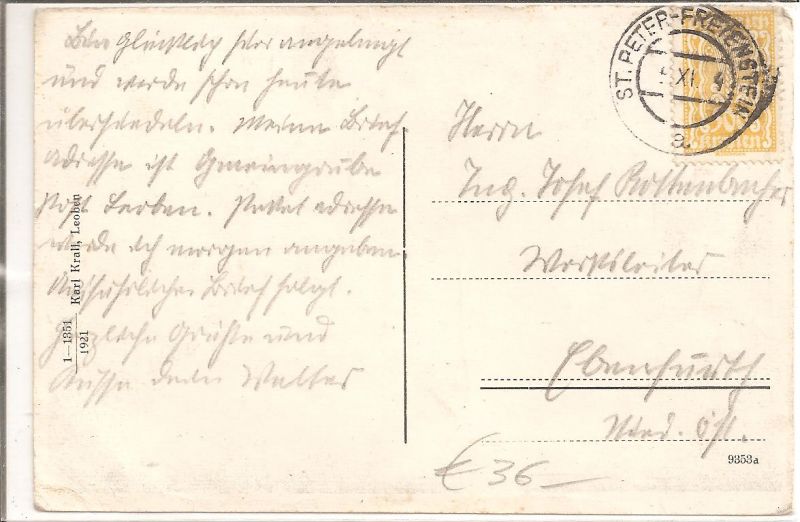 Bin glücklich hier angelangt
und werde schon heute
übersiedeln. Meine Brief
adresse ist Gmeingrube
Post Leoben. Paket adresse
werde ich morgen angeben.
Ausführlicher Brief folgt.
Herzliche Grüße und
Küsse dein Walter
1—1351
1921
Karl Krall, Leoben
ST. PETER-FREIENSTEIN
XI
a
Herrn
Ing. Josef Rottenbacher
Werksleiter
Ebenfurth
Nied. Öst.
9353a
€ 36—